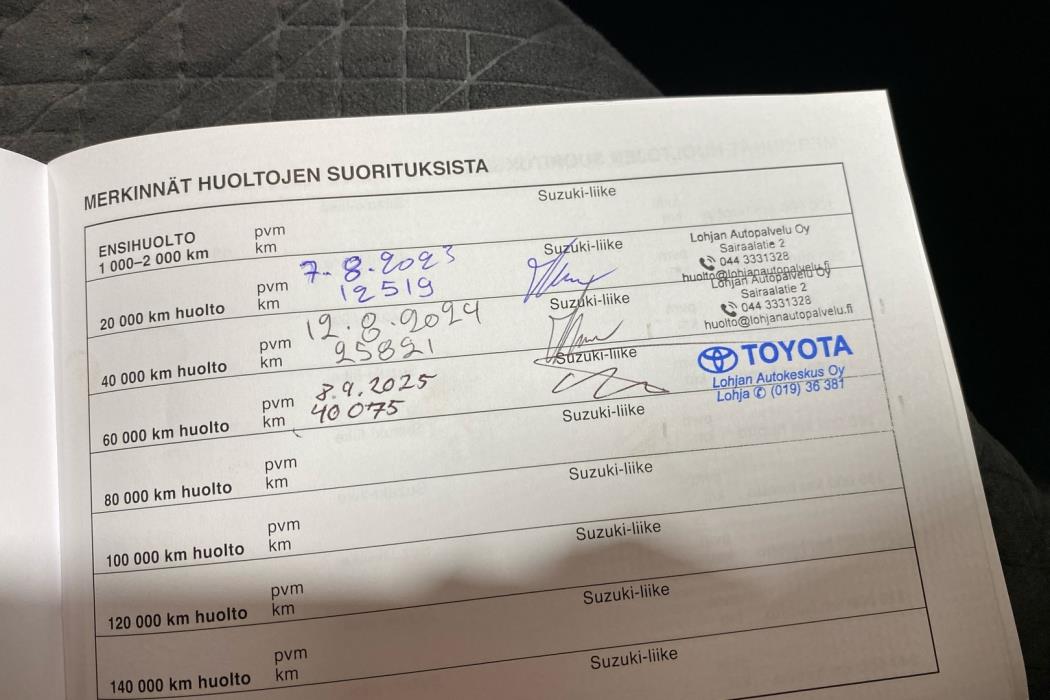 MERKINNÄT HUOLTOJEN SUORITUKSISTA
ENSIHUOLTO
1 000–2 000 km
pvm
km
Suzuki-liike
20 000 km huolto
pvm 7.8.2023
km 12519
Suzuki-liike
Lohjan Autopalvelu Oy
Sairaalatie 2
044 3331328
huolto@lohjanautopalvelu.fi
40 000 km huolto
pvm 12.8.2024
km 25821
Suzuki-liike
Lohjan Autopalvelu Oy
Sairaalatie 2
044 3331328
huolto@lohjanautopalvelu.fi
60 000 km huolto
pvm 8.9.2025
km 40075
Suzuki-liike
TOYOTA
Lohjan Autokeskus Oy
Lohja (019) 36 381
80 000 km huolto
pvm
km
Suzuki-liike
100 000 km huolto
pvm
km
Suzuki-liike
120 000 km huolto
pvm
km
Suzuki-liike
140 000 km huolto
pvm
km
Suzuki-liike